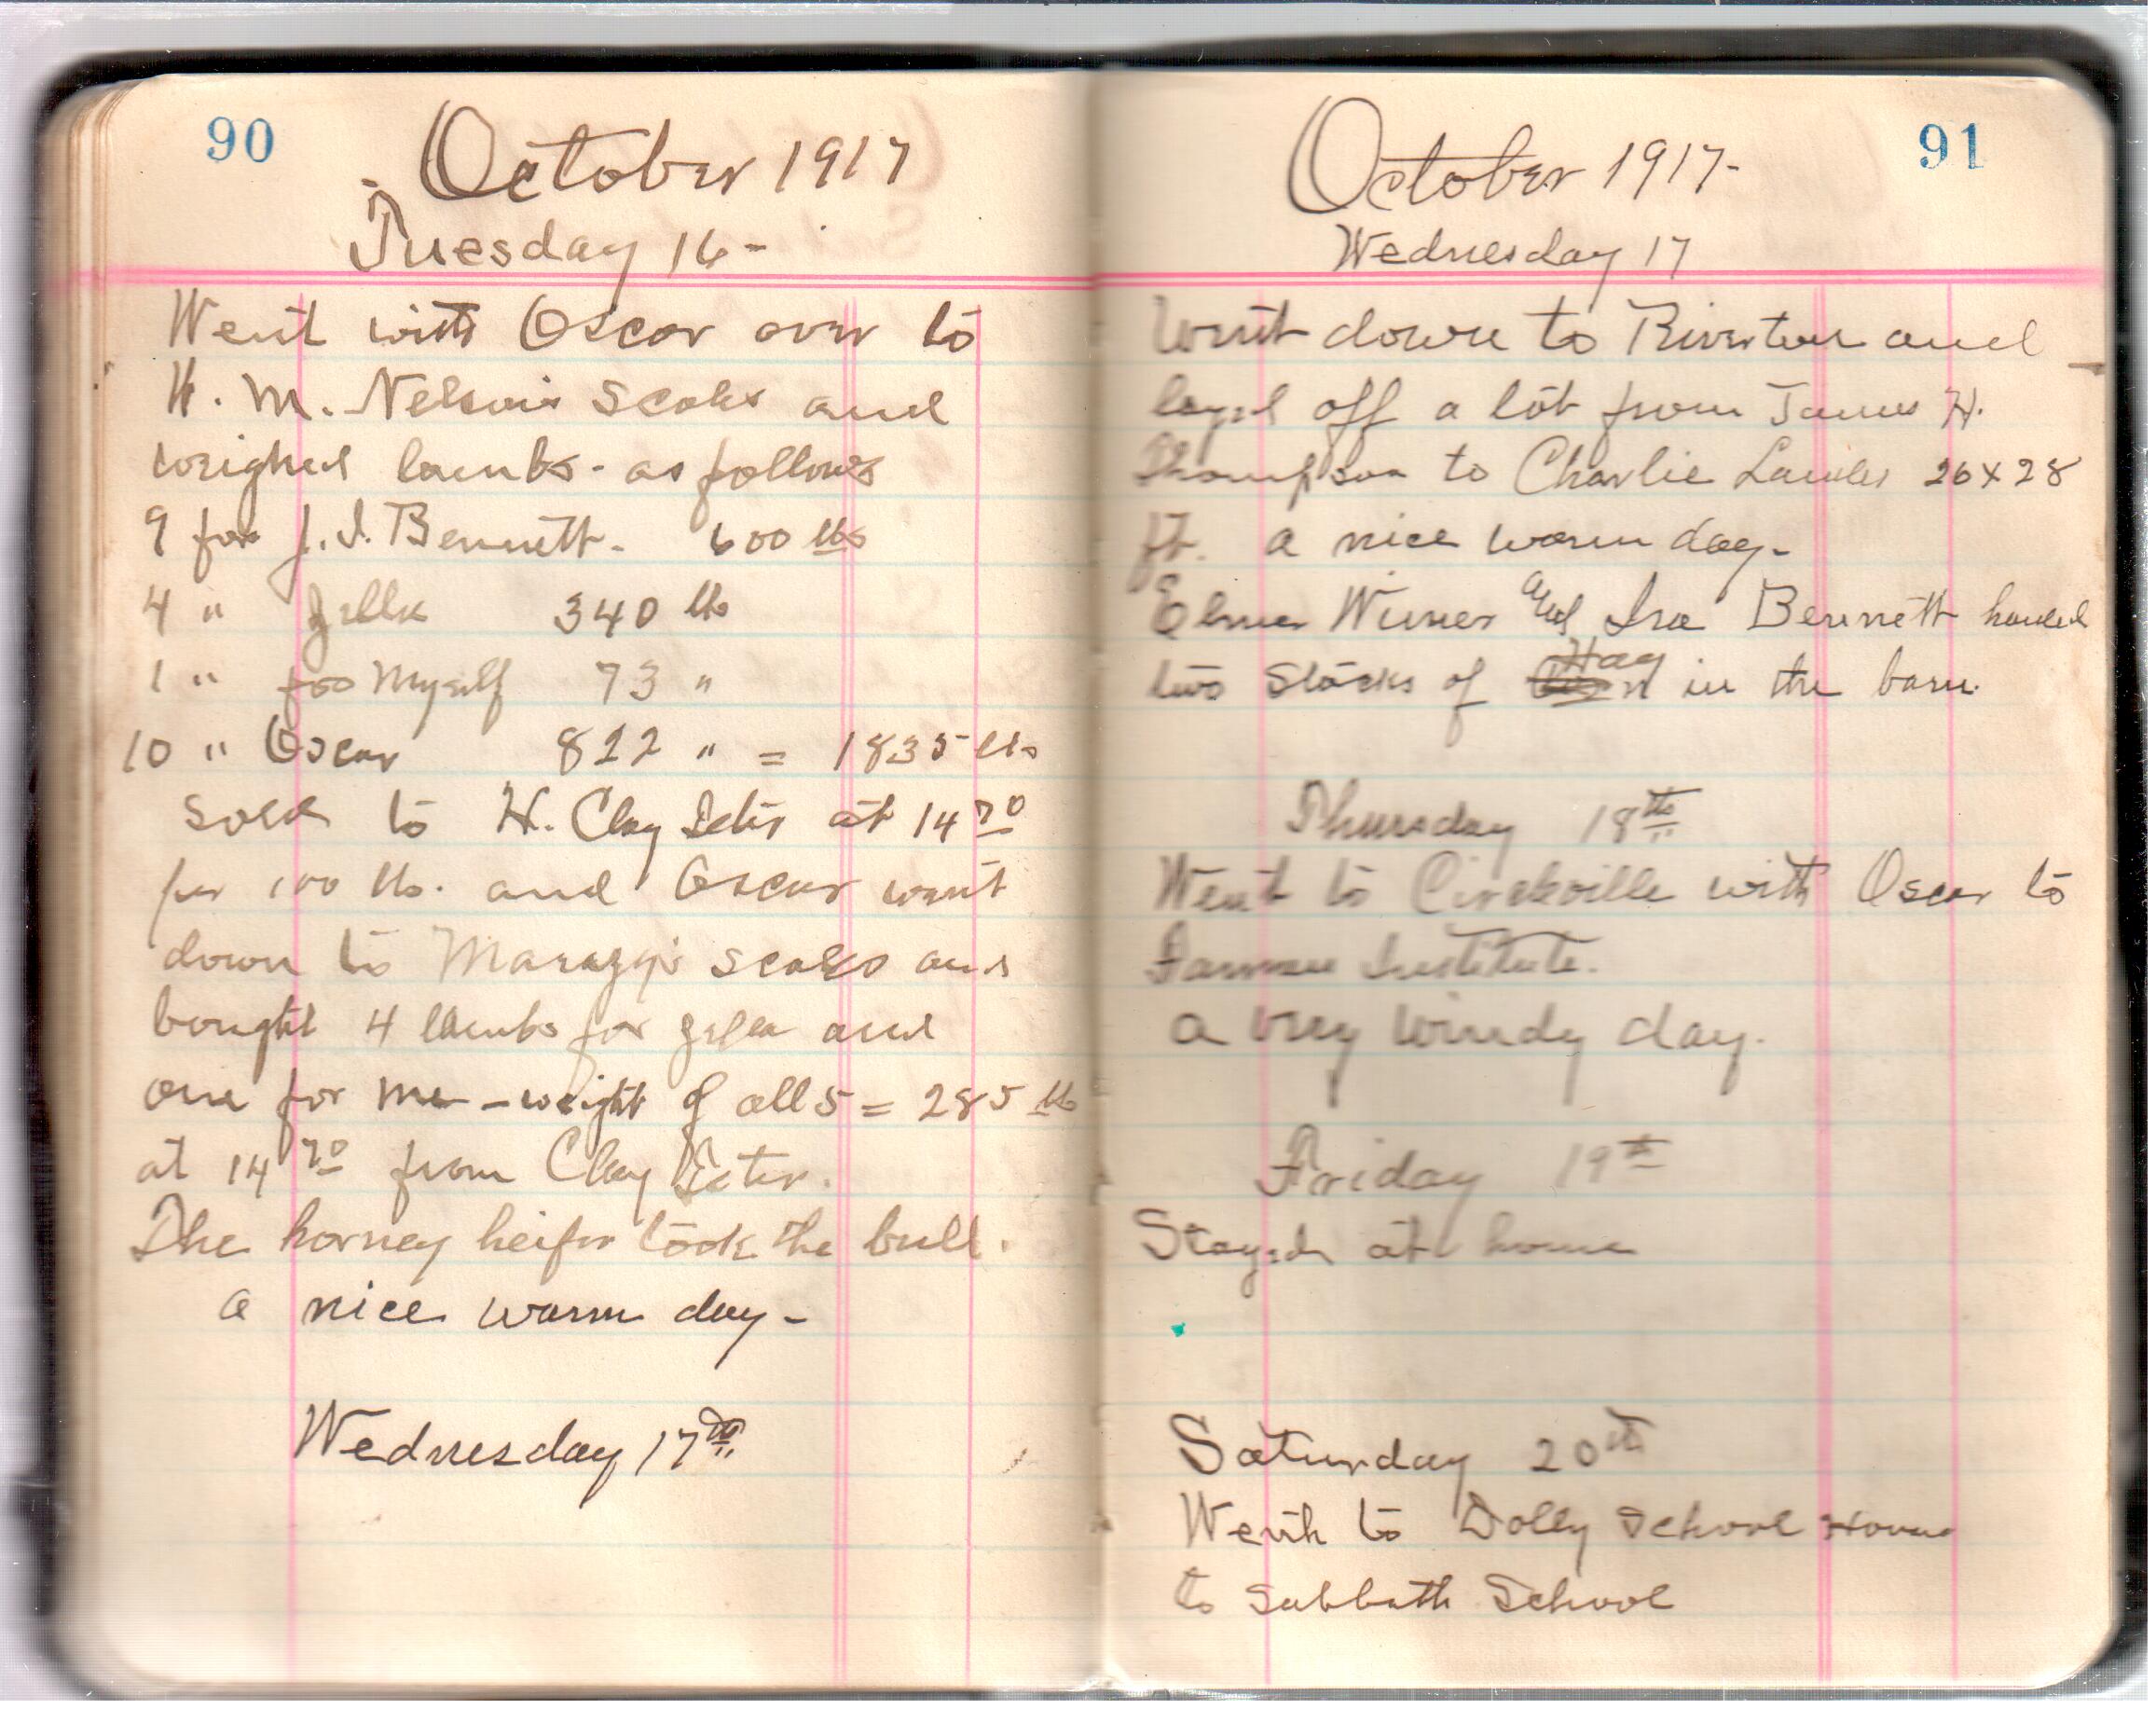 90
October 1917
Tuesday 16-
Went with Oscar over to
H. M. Nelson's Scales and
weighed lambs - as follows
9 for J. I. Bennett. 600 lbs
4 " Zella 340 lb
1 " for Myself 73 "
10 " Oscar 822 " = 1835 lbs
sold to H. Clay Teter at 14 70
per 100 lb. and Oscar went
down to scales and
bought 4 lambs for Zella and
one for me - weight of all 5 = 285 lb
at 14 70 from Clay Teter.
The horney heifer took the bull.
a nice warm day -
Wednesday 17th
91
October 1917-
Wednesday 17
Went down to Riverton and
layed off a lot from James H.
Thompson to Charlie 26 x 28
ft. a nice warm day-
Elmer and Ira Bennett hauled
two Stacks of Hay in the barn.
Thursday 18th
Went to Circleville with Oscar to
Farmers Institute.
a very windy day.
Friday 19th
Stayed at home
Saturday 20th
Went to Dolly School House
to Sabbath School